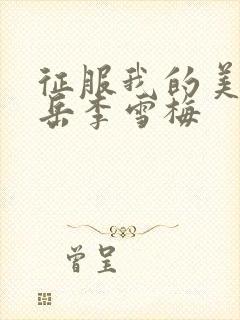 征服我的美
岳李雪梅
曾呈